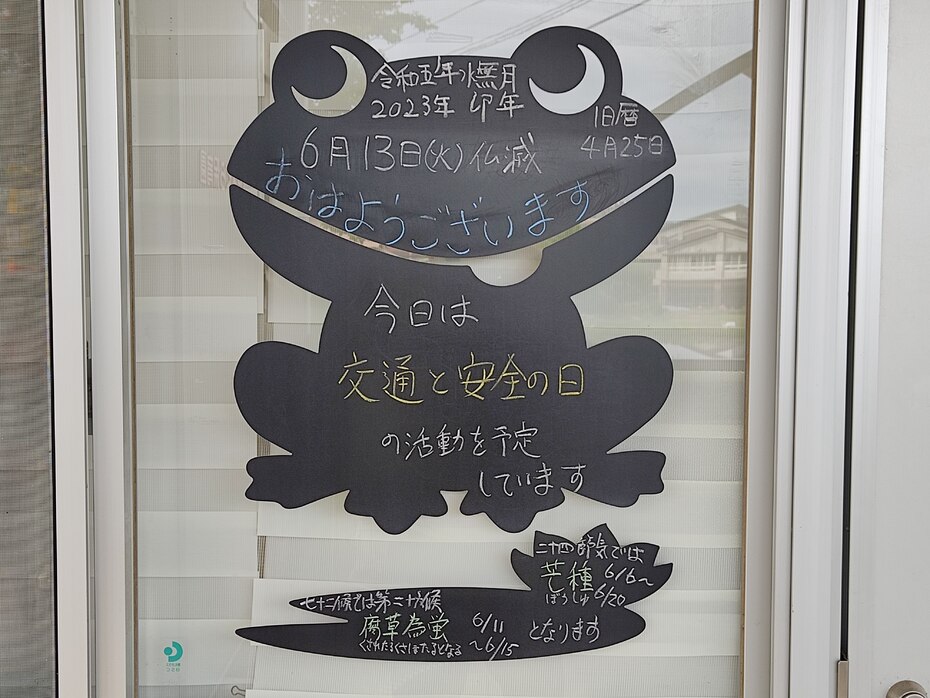 令和五年水無月
2023年 卯年
旧暦
4月25日
6月13日(火)仏滅
おはようございます
今日は
交通と安全の日
の活動を予定
しています
二十四節気では
芒種 6/6〜
ぼうしゅ 6/20
七十二候では第二十六候
腐草為蛍 6/11
くされたるくさほたるとなる 〜6/15
となります